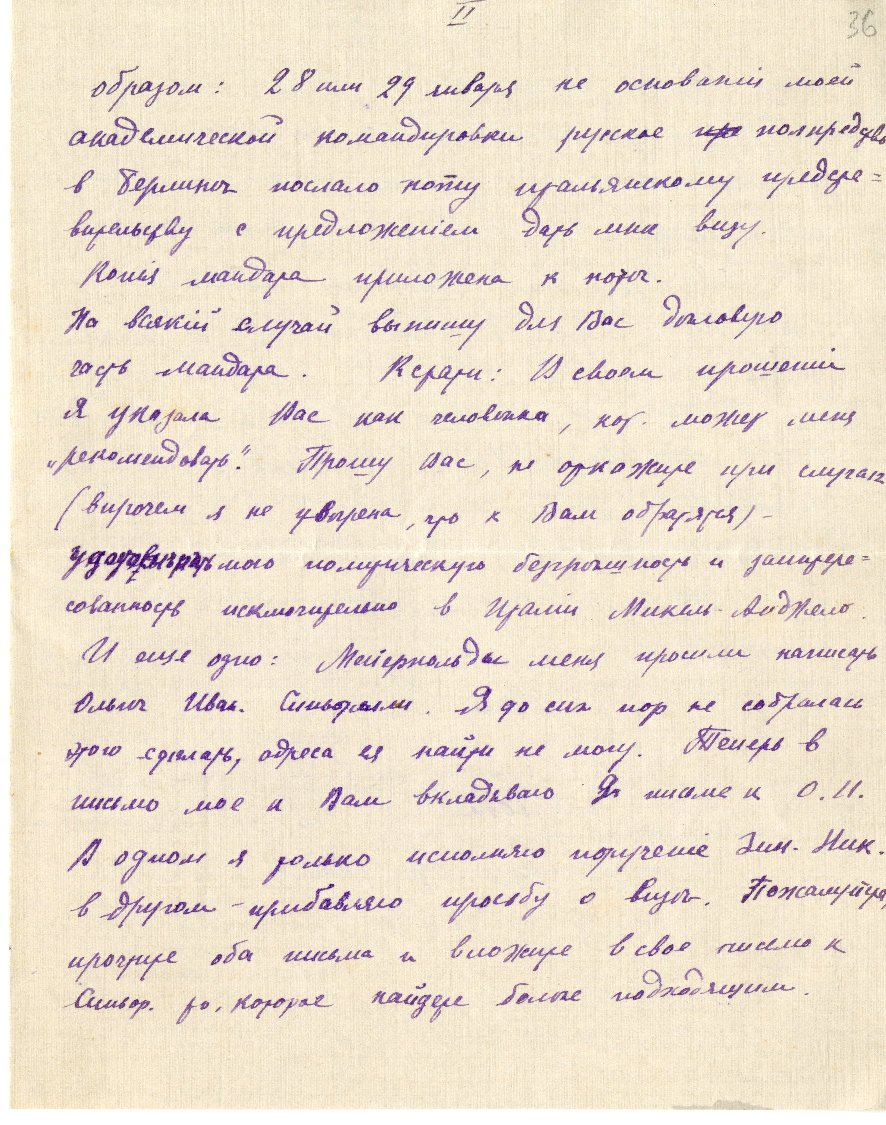 II
36
образом: 28 или 29 января на основаніи моей
академической командировки русское полпредство
в Берлинѣ послало ноту итальянскому предста=
вительству с предложеніем дать мнѣ визу.
Копія мандата приложена к нотѣ.
На всякій случай выпишу для Вас дословно
часть мандата. Кстати: В своем прошеніи
я указала Вас как человѣка, кот. может меня
„рекомендовать". Прошу Вас, не откажите при случаѣ
(впрочем я не увѣрена, что к Вам обратятся) –
удостовѣрить мою политическую безгрѣшность и заинтере=
сованность исключительно в Италіи Микель-Анджело.
И еще одно: Мейерхольды меня просили написать
Ольгѣ Иван. Синьорелли. Я до сих пор не собралась
этого сделать, адреса ея найти не могу. Теперь в
письмо мое к Вам вкладываю 2 письма к О. И.
В одном я только исполняю порученіе Зин. Ник.
в другом – прибавляю просьбу о визѣ. Пожалуйста,
прочтите оба письма и вложите в свое письмо к
Синьор. то, которое найдете более подходящим.